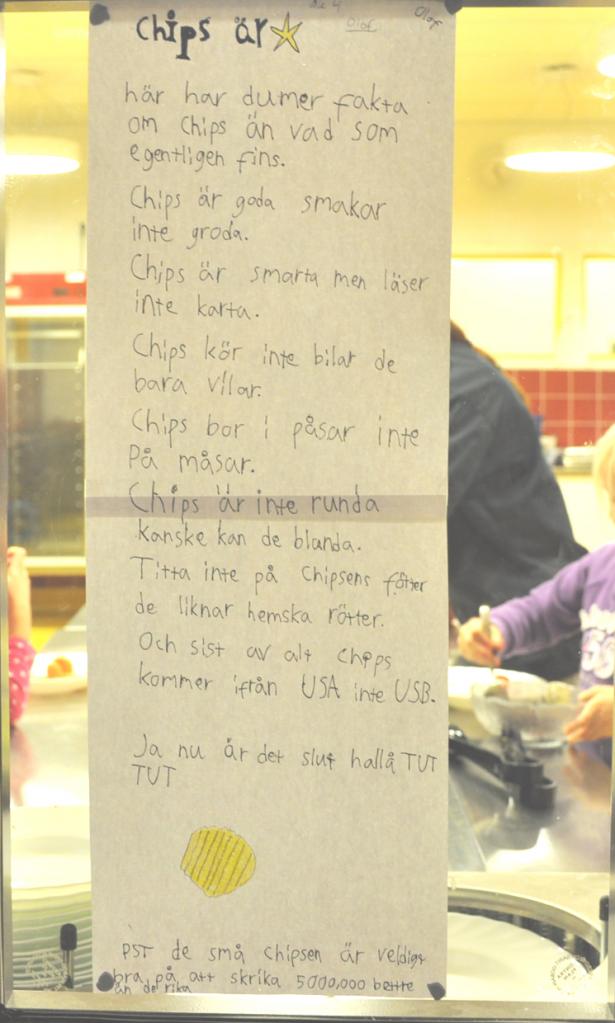 Chips är
Olof
Olof
här har dumer fakta
om Chips än vad som
egentligen fins.
Chips är goda smakar
inte groda.
Chips är smarta men läser
inte karta.
Chips kör inte bilar de
bara vilar.
Chips bor i påsar inte
På måsar.
Chips är inte runda
kanske kan de blunda.
Titta inte på Chipsens fötter
de liknar hemska rötter.
Och sist av alt Chips
kommer ifrån USA inte USB.
Ja nu är det slut hallå TUT
TUT
PST de små chipsen är veldigt
bra på att skrika 5000,000 bettre
än de rika